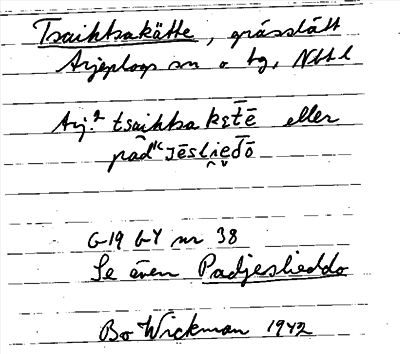 Tsaihtsakätte, grässlätt
Arjeplogs sn o tg, Nbtl
Arj.² tsaihtsakɛtē eller
pādᴵᶜjēsliedō
G19 GY nr 38
Se även Padjeslieddo
Bo Wickman 1942